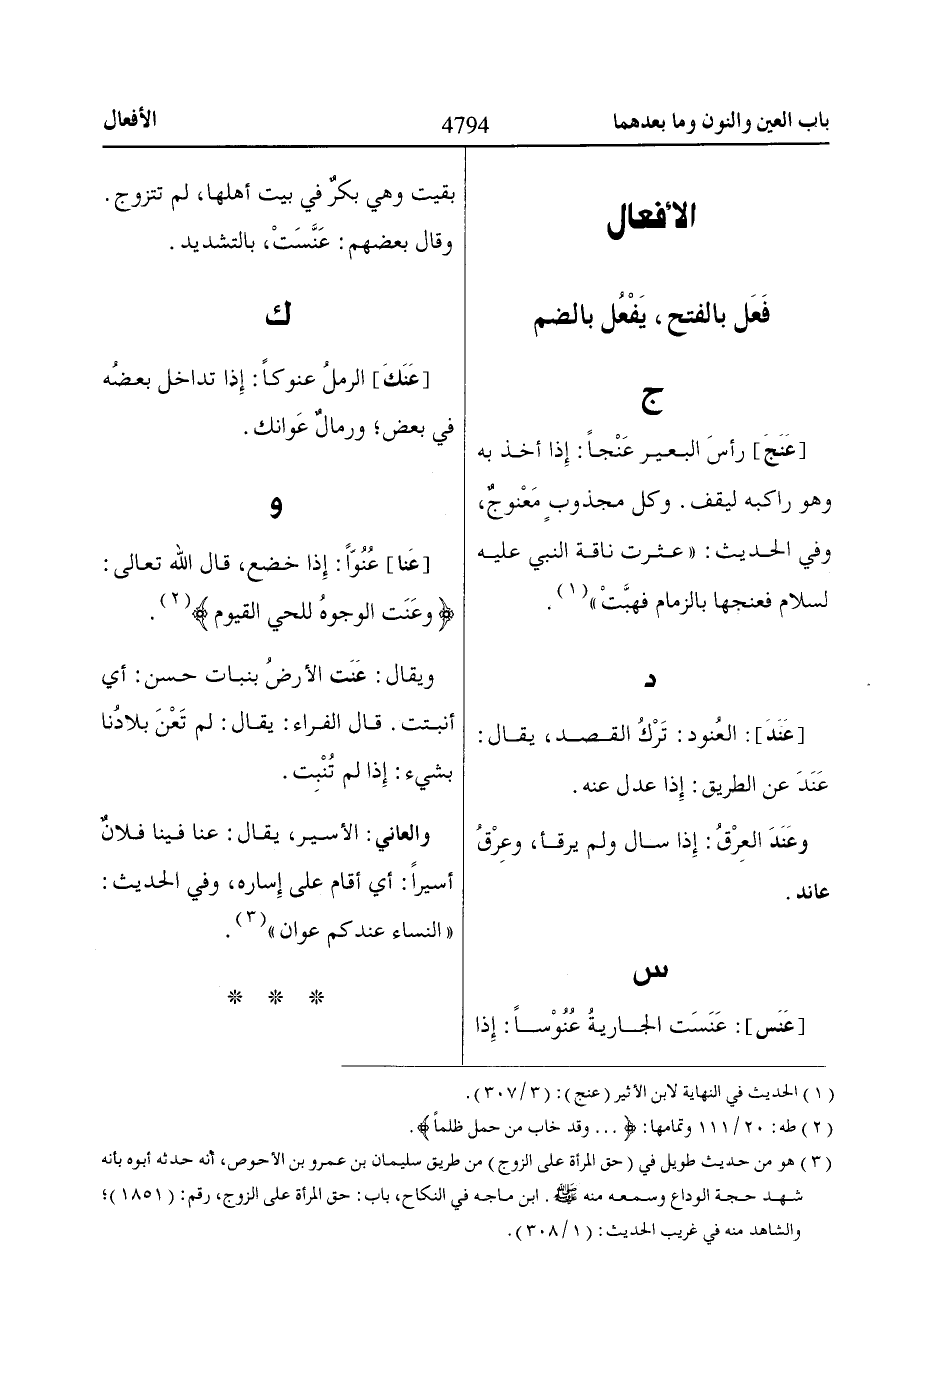 باب العين والنون وما بعدهما
4794
الأفعال
الأفعال
فَعَل بالفتح، يَفْعُل بالضم
ج
[عَنَجَ] رأسَ البعير عَنْجاً: إذا أخذ به
وهو راكبه ليقف. وكل مجذوبٍ مَعْنوجٌ،
وفي الحديث: «عثرت ناقة النبي عليه
لسلام فعنجها بالزمام فهبَّتْ»(١).
د
[عَنَدَ]: العُنود: تَرْكُ القصد، يقال:
عَنَدَ عن الطريق: إذا عدل عنه.
وعَنَدَ العِرْقُ: إذا سال ولم يرقأ، وعِرْقُ
عاند.
س
[عَنَس]: عَنَسَت الجاريةُ عُنُوْساً: إذا
بقيت وهي بكرٌ في بيت أهلها، لم تتزوج.
وقال بعضهم: عَنَّسَتْ، بالتشديد.
ك
[عَنَكَ] الرملُ عنوكاً: إذا تداخل بعضُه
في بعض؛ ورمالٌ عَوانك.
و
[عَنا] عُنُوّاً: إذا خضع، قال الله تعالى:
﴿وعَنَت الوجوهُ للحي القيوم﴾(٢).
ويقال: عَنَت الأرضُ بنبات حسن: أي
أنبتت. قال الفراء: يقال: لم تَعْنَ بلادُنا
بشيء: إذا لم تُنْبِت.
والعاني: الأسير، يقال: عنا فينا فلانٌ
أسيراً: أي أقام على إساره، وفي الحديث:
«النساء عندكم عوان»(٣).
* * *
(١) الحديث في النهاية لابن الأثير (عنج): (٣/٣٠٧).
(٢) طه: ٢٠/١١١ وتمامها: ﴿... وقد خاب من حمل ظلماً﴾.
(٣) هو من حديث طويل في (حق المرأة على الزوج) من طريق سليمان بن عمرو بن الأحوص، أنه حدثه أبوه بأنه
شهد حجة الوداع وسمعه منه ﷺ. ابن ماجه في النكاح، باب: حق المرأة على الزوج، رقم: (١٨٥١)؛
والشاهد منه في غريب الحديث: (١/٣٠٨).